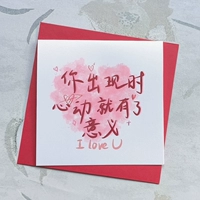 你出现时
心动就有了
意义
I love U